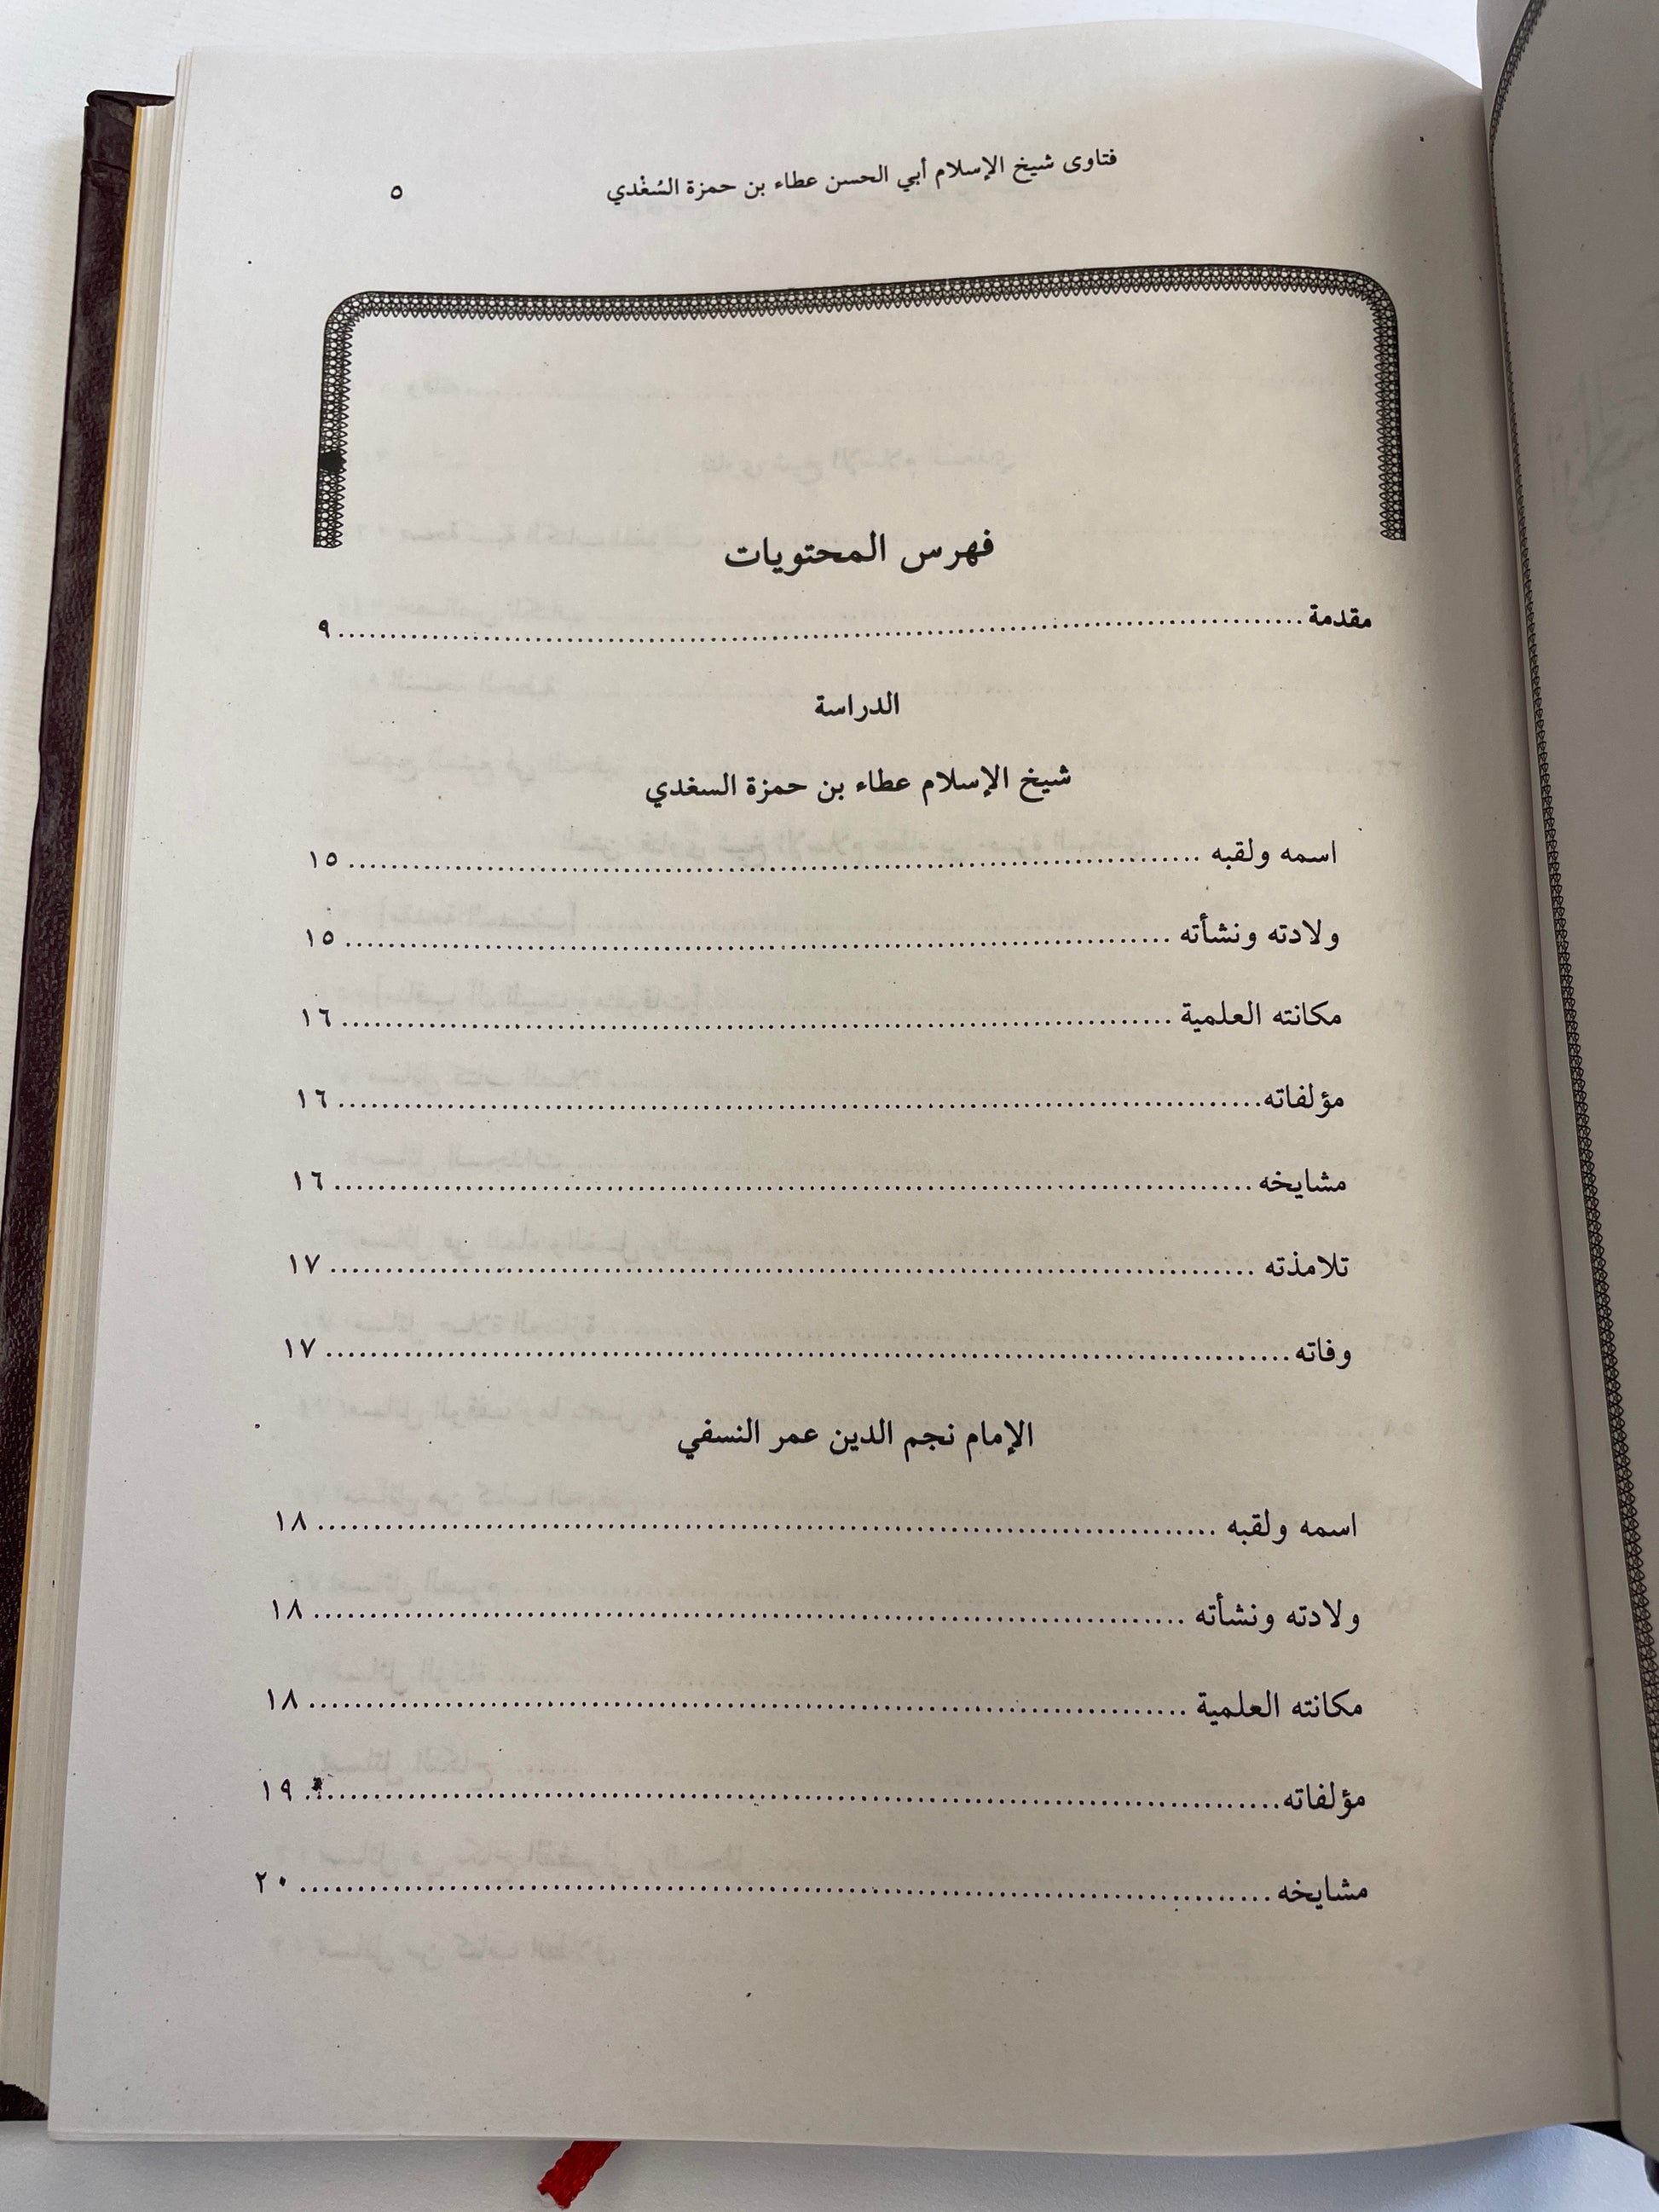 فتاوى شيخ الإسلام أبي الحسن عطاء بن حمزة السُغْدي ٥
فهرس المحتويات
مقدمة ........ ٩
الدراسة
شيخ الإسلام عطاء بن حمزة السغدي
اسمه ولقبه ........ ١٥
ولادته ونشأته ........ ١٥
مكانته العلمية ........ ١٦
مؤلفاته ........ ١٦
مشايخه ........ ١٦
تلامذته ........ ١٧
وفاته ........ ١٧
الإمام نجم الدين عمر النسفي
اسمه ولقبه ........ ١٨
ولادته ونشأته ........ ١٨
مكانته العلمية ........ ١٨
مؤلفاته ........ ١٩
مشايخه ........ ٢٠